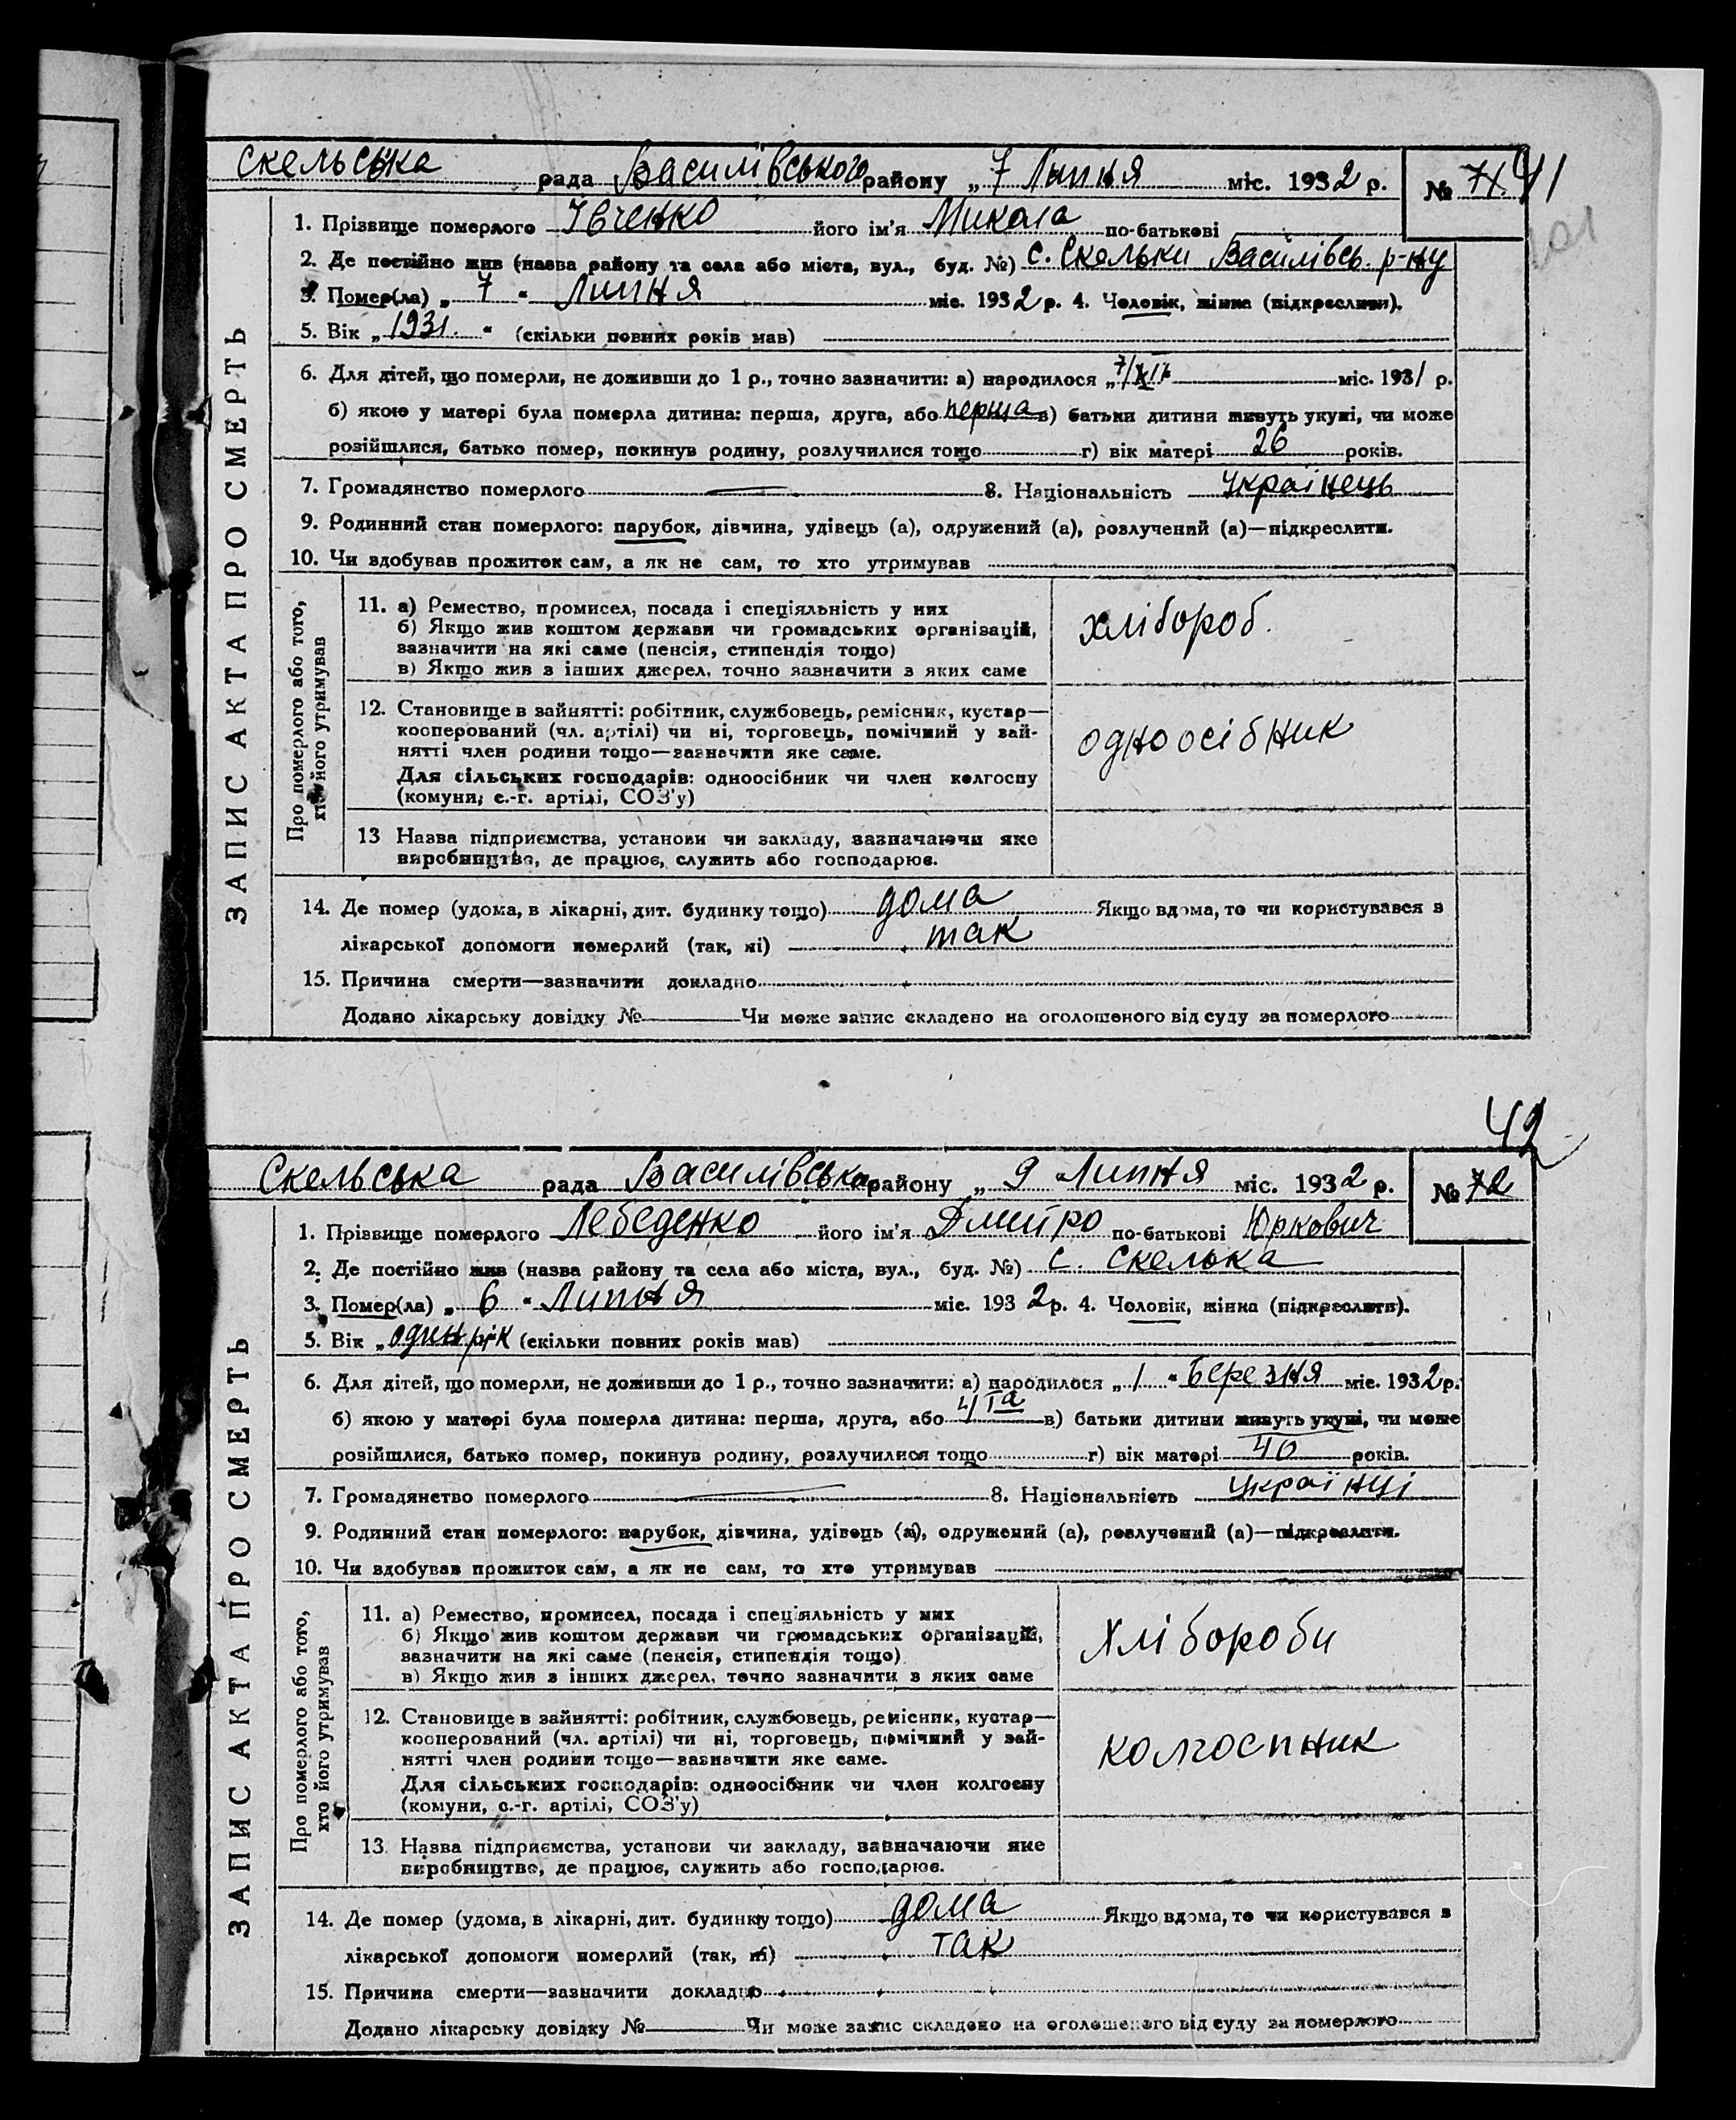 41
Скельська рада Василівського району „ 7 Липня міс. 1932 р. № 71
101
1. Прізвище померлого Івченко його ім'я Микола по-батькові
2. Де постійно жив (назва району та села або міста, вул., буд. №) с. Скельки Василівсь. р-ну
3. Помер(ла) „ 7 " Липня міс. 1932 р. 4. Чоловік, жінка (підкреслити).
5. Вік „ 1931 " (скільки повних років мав)
6. Для дітей, що померли, не доживши до 1 р., точно зазначити: а) народилося „ 7/XII міс. 1931 р.
б) якою у матері була померла дитина: перша, друга, або перша в) батьки дитини живуть укупі, чи може
розійшлися, батько помер, покинув родину, розлучилися тощо г) вік матері 26 років.
7. Громадянство померлого — 8. Національність Українець
9. Родинний стан померлого: парубок, дівчина, удівець (а), одружений (а), розлучений (а)—підкреслити.
10. Чи здобував прожиток сам, а як не сам, то хто утримував
ЗАПИС АКТА ПРО СМЕРТЬ
Про померлого або того,
хто його утримував
11. а) Ремество, промисел, посада і спеціяльність у них
б) Якщо жив коштом держави чи громадських організацій,
зазначити на які саме (пенсія, стипендія тощо)
в) Якщо жив з інших джерел, точно зазначити з яких саме
хлібороб.
12. Становище в зайнятті: робітник, службовець, ремісник, кустар—
кооперований (чл. артілі) чи ні, торговець, помічний у зай-
нятті член родини тощо—зазначити яке саме.
Для сільських господарів: одноосібник чи член колгоспу
(комуни, с.-г. артілі, СОЗ'у)
одноосібник
13 Назва підприємства, установи чи закладу, зазначаючи яке
виробництво, де працює, служить або господарює.
14. Де помер (удома, в лікарні, дит. будинку тощо) дома Якщо вдома, то чи користувався з
лікарської допомоги померлий (так, ні) так
15. Причина смерти—зазначити докладно
Додано лікарську довідку № Чи може запис складено на оголошеного від суду за померлого
42
Скельська рада Василівська району „ 9 Липня міс. 1932 р. № 72
1. Прізвище померлого Лебеденко його ім'я Дмитро по-батькові Юркович
2. Де постійно жив (назва району та села або міста, вул., буд. №) с. Скелька
3. Помер(ла) „ 6 " Липня міс. 1932 р. 4. Чоловік, жінка (підкреслити).
5. Вік „ один рік (скільки повних років мав)
6. Для дітей, що померли, не доживши до 1 р., точно зазначити: а) народилося „ 1 " Березня міс. 1932 р.
б) якою у матері була померла дитина: перша, друга, або в) батьки дитини живуть укупі, чи може
розійшлися, батько помер, покинув родину, розлучилися тощо г) вік матері 40 років.
7. Громадянство померлого — 8. Національність Українці
9. Родинний стан померлого: парубок, дівчина, удівець (а), одружений (а), розлучений (а)—підкреслити.
10. Чи здобував прожиток сам, а як не сам, то хто утримував
ЗАПИС АКТА ПРО СМЕРТЬ
Про померлого або того,
хто його утримував
11. а) Ремество, промисел, посада і спеціяльність у них
б) Якщо жив коштом держави чи громадських організацій,
зазначити на які саме (пенсія, стипендія тощо)
в) Якщо жив з інших джерел, точно зазначити в яких саме
Хлібороби
12. Становище в зайнятті: робітник, службовець, ремісник, кустар—
кооперований (чл. артілі) чи ні, торговець, помічний у зай-
нятті член родини тощо—зазначити яке саме.
Для сільських господарів: одноосібник чи член колгоспу
(комуни, с.-г. артілі, СОЗ'у)
колгоспник
13. Назва підприємства, установи чи закладу, зазначаючи яке
виробництво, де працює, служить або господарює.
14. Де помер (удома, в лікарні, дит. будинку тощо) дома Якщо вдома, то чи користувався з
лікарської допомоги померлий (так, ні) так
15. Причина смерти—зазначити докладно
Додано лікарську довідку № Чи може запис складено на оголошеного від суду за померлого